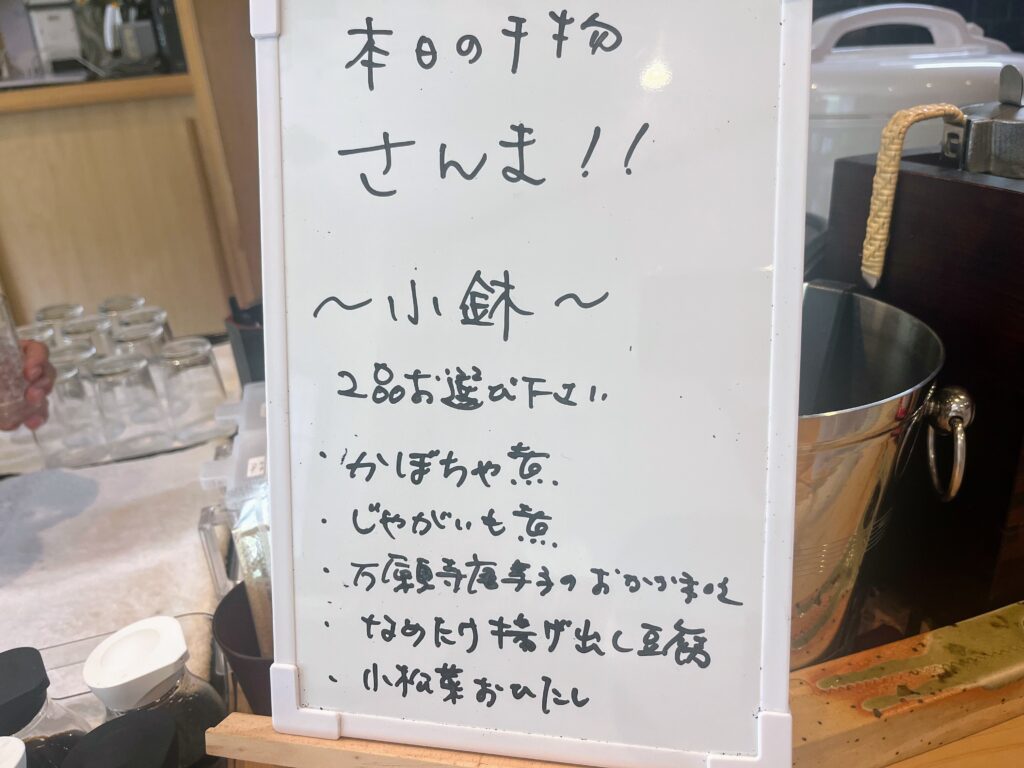 本日の干物
さんま!!
〜小鉢〜
2品お選び下さい
・かぼちゃ煮
・じゃがいも煮
・万願寺唐辛子のおかか和え
・なめたけ揚げ出し豆腐
・小松菜おひたし